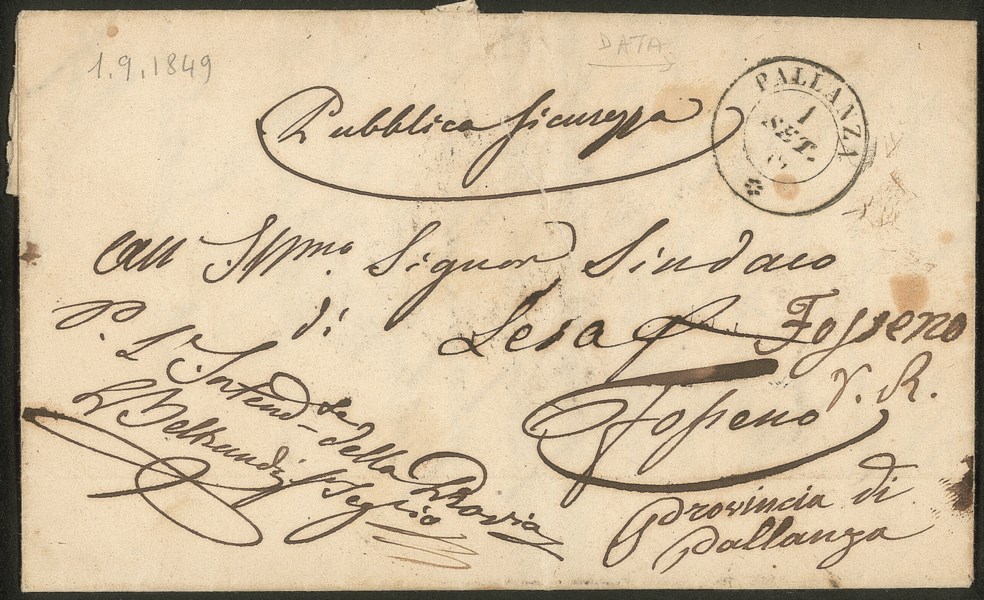 1.9.1849
DATA
Pubblica Sicurezza
PALLANZA
1
SET.
All' Ill.mo Signor Sindaco
di Lesa Fosseno
V. R.
Fosseno
Provincia di
Pallanza
P. L'Intend.te della Provia
Beltrandi Segrio